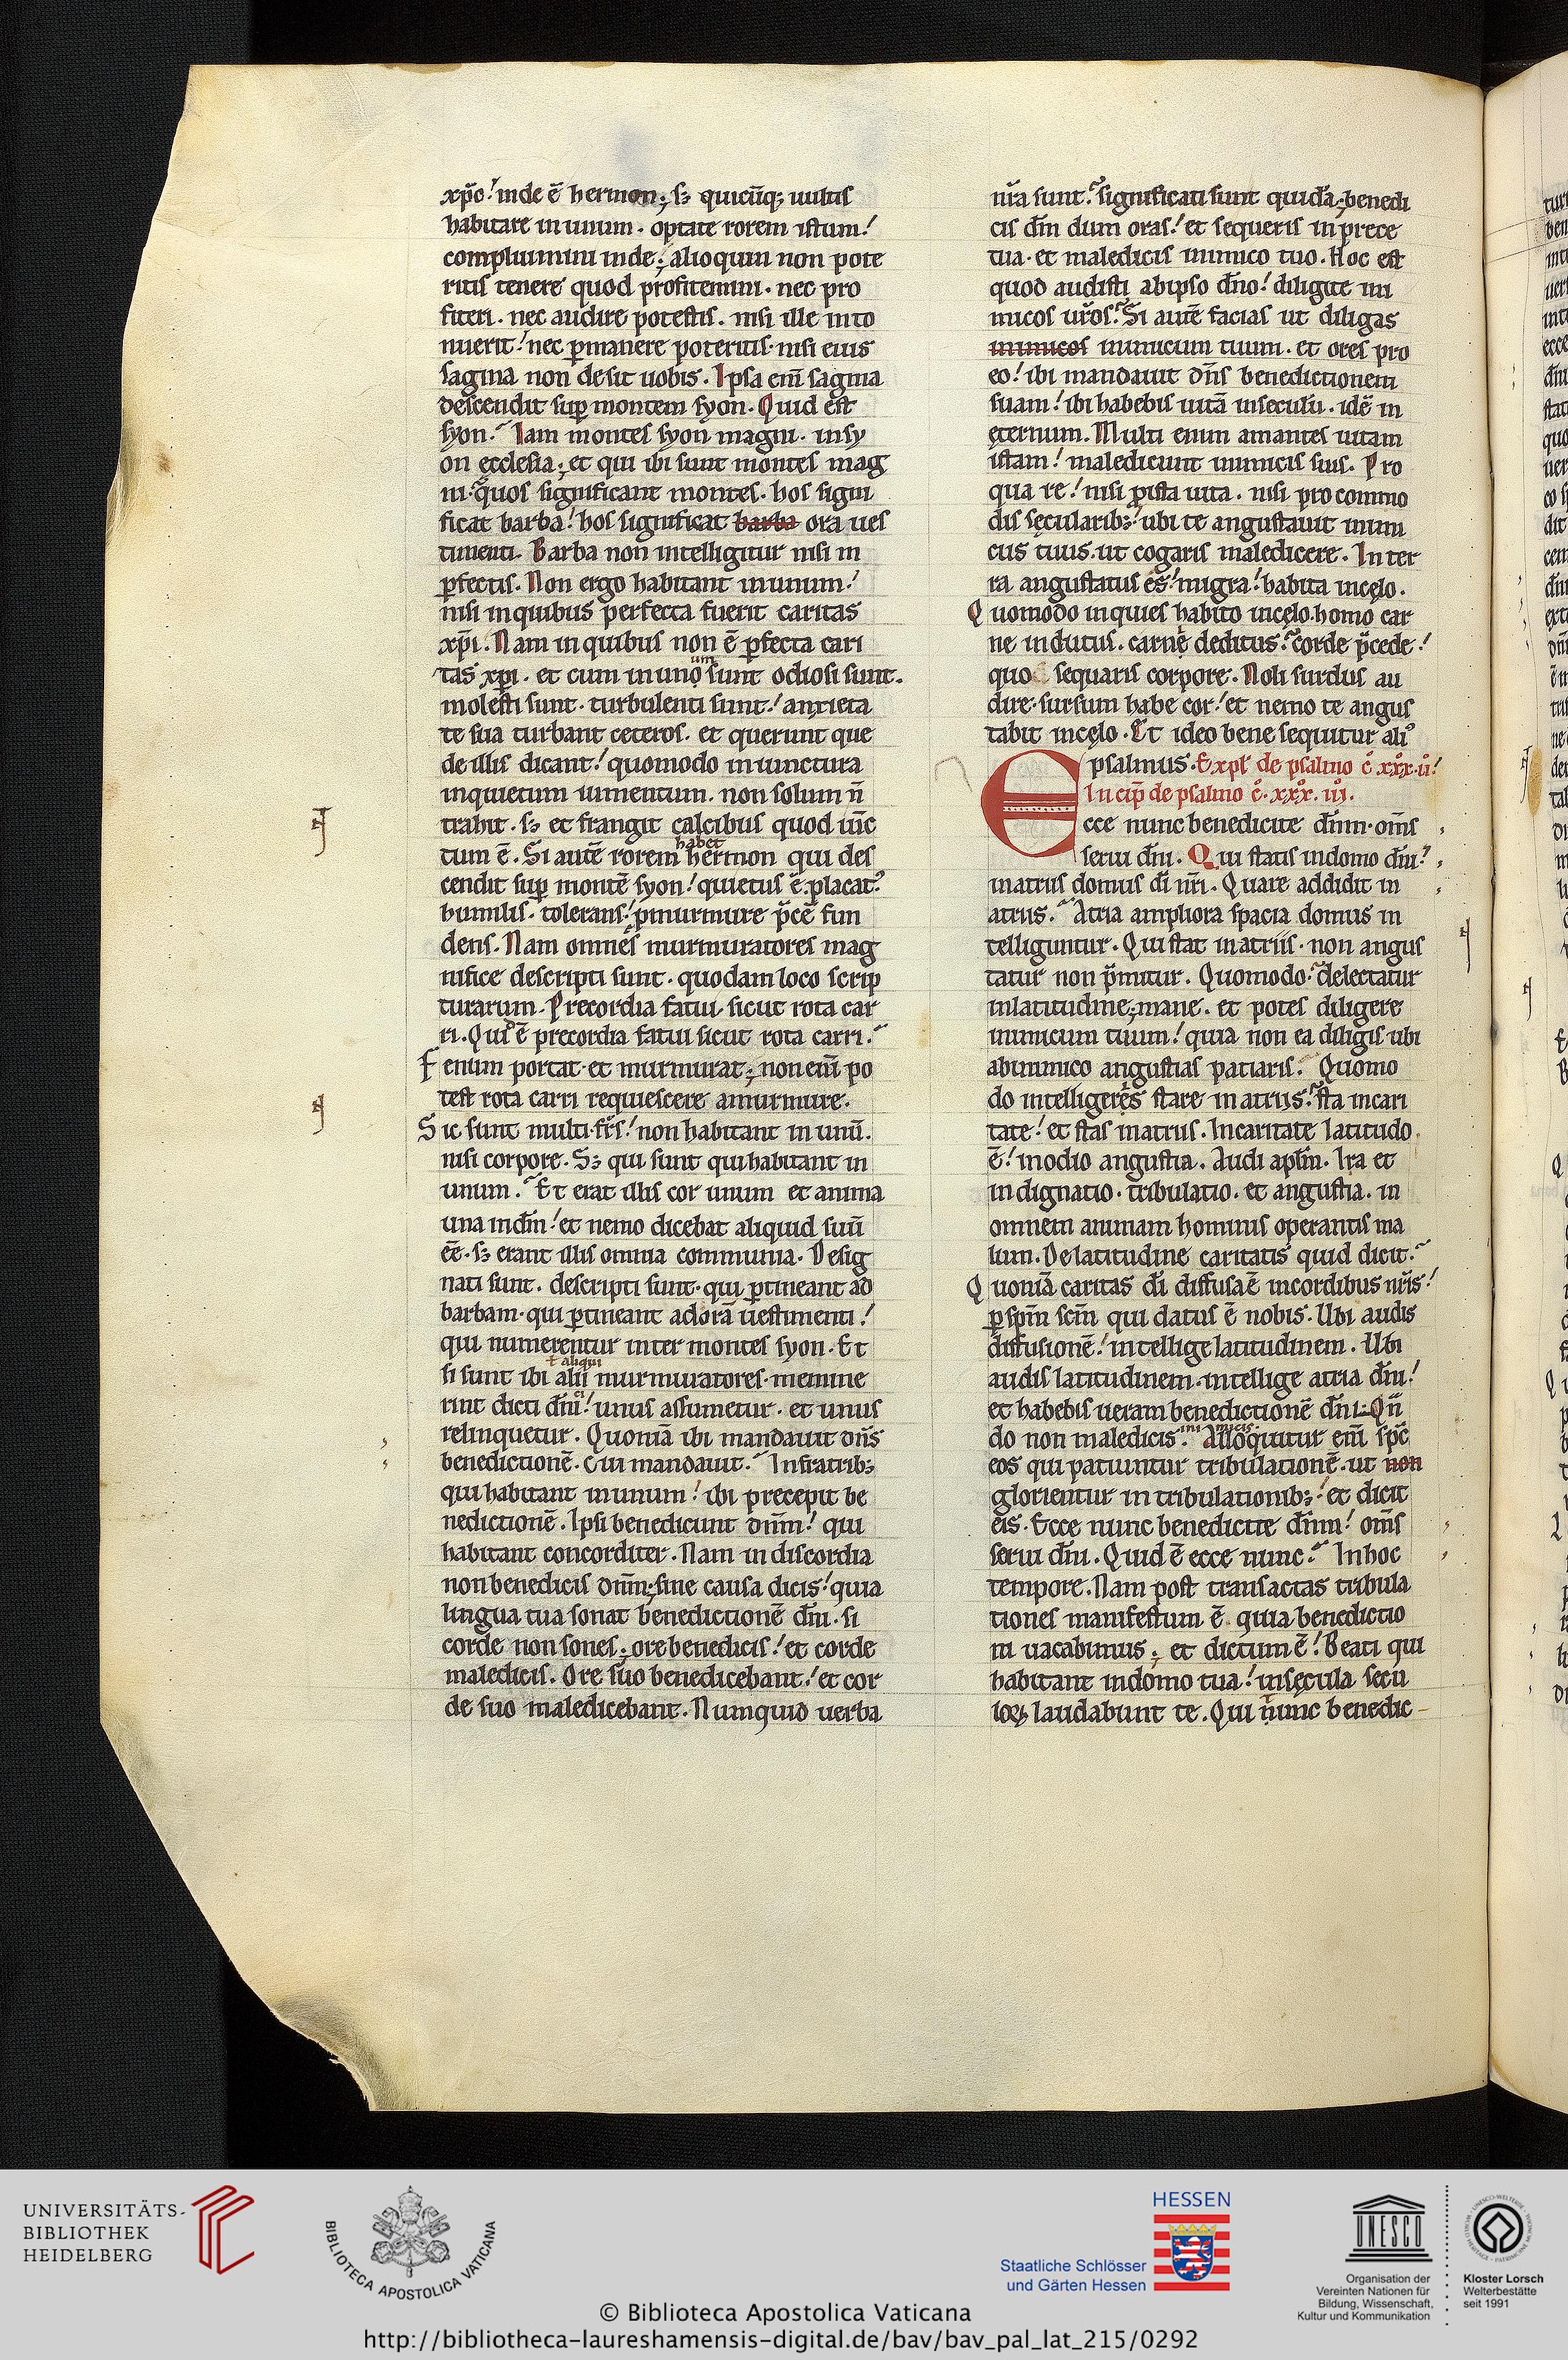 xp̄o! inde ē hermon; sꝫ quicūq; uultis
habitare in unum. optate rorem istum!
compluimini inde; alioquin non pote
ritis tenere quod profitemini. nec pro
fiteri. nec audire potestis. nisi ille into
nuerit! nec ꝑmanere poteritis. nisi eius
sagina non desit uobis. Ipsa enī sagina
descendit suꝑ montem syon. Quid est
syon? Iam montes syon magni. in sy
on ęcclesia; et qui ibi sunt montes mag
ni. quos significant montes. hos signi
ficat barba! hos significat barba ora ues
timenti. Barba non intelligitur nisi in
ꝑfectis. Non ergo habitant in unum!
nisi in quibus perfecta fuerit caritas
xp̄i. Nam in quibus non ē ꝑfecta cari
tas xp̄i. et cum in uno um sunt odiosi sunt.
molesti sunt. turbulenti sunt! anxieta
te sua turbant ceteros. et querunt que
de illis dicant! quomodo in iunctura
inquietum iumentum. non solum n̄
trahit. sꝫ et frangit calcibus quod iūc
tum ē. Si autē rorem habet hermon qui des
cendit suꝑ montē syon! quietus ē. placat᷒
humilis. tolerans! ꝓ murmure p̄cē fun
dens. Nam omnes murmuratores mag
nifice descripti sunt. quodam loco scrip
turarum. Precordia fatui sicut rota car
ri. Quid ē precordia fatui sicut rota carri?
Fenum portat et murmurat; non enī po
test rota carri requiescere a murmure.
Sic sunt multi fr̄s! non habitant in unū.
nisi corpore. Sꝫ qui sunt qui habitant in
unum? Et erat illis cor unum et anima
una in dm̄! et nemo dicebat aliquid suū
eē. sꝫ erant illis omnia communia. Desig
nati sunt. descripti sunt. qui ꝑtineant ad
barbam. qui ꝑtineant ad orā uestimenti!
qui numerentur inter montes syon. Et
si sunt ibi alii ł aliqui murmuratores. memine
rint dicti dn̄i! unus assumetur. et unus
relinquetur. Quoniā ibi mandauit dn̄s
benedictionē. Cui mandauit? In fratribꝫ
qui habitant in unum! ibi precepit be
nedictionē. Ipsi benedicunt dnm̄! qui
habitant concorditer. Nam in discordia
non benedicis dnm̄; sine causa dicis! quia
lingua tua sonat benedictionē dn̄i. si
corde non sones; ore benedicis! et corde
maledicis. Ore suo benedicebant! et cor
de suo maledicebant. Numquid uerba
nr̄a sunt? significati sunt quidā; benedi
cis dm̄ dum oras! et sequeris in prece
tua. et maledicis inimico tuo. Hoc est
quod audisti ab ipso dn̄o! diligite ini
micos ur̄os? Si autē facias ut diligas
inimicos inimicum tuum. et ores pro
eo! ibi mandauit dn̄s benedictionem
suam! ibi habebis uitā in seculū. idē in
ęternum. Multi enim amantes uitam
istam! maledicunt inimicis suis. Pro
qua re! nisi ꝓ ista uita. nisi pro commo
dis sęcularibꝫ! ubi te angustauit inimi
cus tuus. ut cogaris maledicere. In ter
ra angustatus es! migra! habita in cęlo.
Quomodo inquies habito in cęlo. homo car
ne indutus. carnę deditus? corde p̄cede!
quo sequaris corpore. Noli surdus au
dire. sursum habe cor! et nemo te angus
tabit in cęlo. Et ideo bene sequitur ali᷒
psalmus. Expł de psalmo c̊ xxx. ii̊!
Incip̄ de psalmo c̊. xxx. iii.
Ecce nunc benedicite dnm̄. om̄s
serui dn̄i. Qui statis in domo dn̄i?
in atriis domus dī nr̄i. Quare addidit in
atriis? Atria ampliora spacia domus in
telliguntur. Qui stat in atriis. non angus
tatur non p̄mitur. Quomodo? delectatur
in latitudine; mane. et potes diligere
inimicum tuum! quia non ea diligis ubi
ab inimico angustias patiaris. Quomo
do intelligeres stare in atriis? sta in cari
tate! et stas in atriis. In caritate latitudo
ē! in odio angustia. Audi aplm̄. Ira et
indignatio. tribulatio. et angustia. in
omnem animam hominis operantis ma
lum. De latitudine caritatis quid dicit?
Quoniā caritas dī diffusa ē in cordibus nr̄is!
ꝑ spm̄ scm̄ qui datus ē nobis. Ubi audis
diffusionē! intellige latitudinem. Ubi
audis latitudinem. intellige atria dn̄i!
et habebis ueram benedictionē dn̄i. Qn̄
do non maledicis inimicis. Alloquitur enī spc̄
eos qui patiuntur tribulationē. ut non
glorientur in tribulationibꝫ! et dicit
eis. Ecce nunc benedicite dnm̄! om̄s
serui dn̄i. Quid ē ecce nunc? In hoc
tempore. Nam post transactas tribula
tiones manifestum ē quia benedictio
ni uacabimus; et dictum ē! Beati qui
habitant in domo tua! in sęcula sęcu
loꝝ laudabunt te. Qui nunc benedic
UNIVERSITÄTS-
BIBLIOTHEK
HEIDELBERG
BIBLIOTECA APOSTOLICA VATICANA
HESSEN
Staatliche Schlösser
und Gärten Hessen
UNESCO
Organisation der
Vereinten Nationen für
Bildung, Wissenschaft,
Kultur und Kommunikation
Kloster Lorsch
Welterbestätte
seit 1991
© Biblioteca Apostolica Vaticana
http://bibliotheca-laureshamensis-digital.de/bav/bav_pal_lat_215/0292